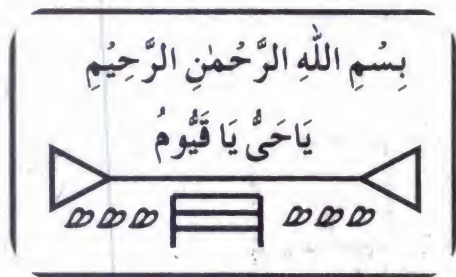 بِسُمِ اللهِ الرَّحُمٰنِ الرَّحِيُمِ
يَاحَىُّ يَا قَيُّومُ